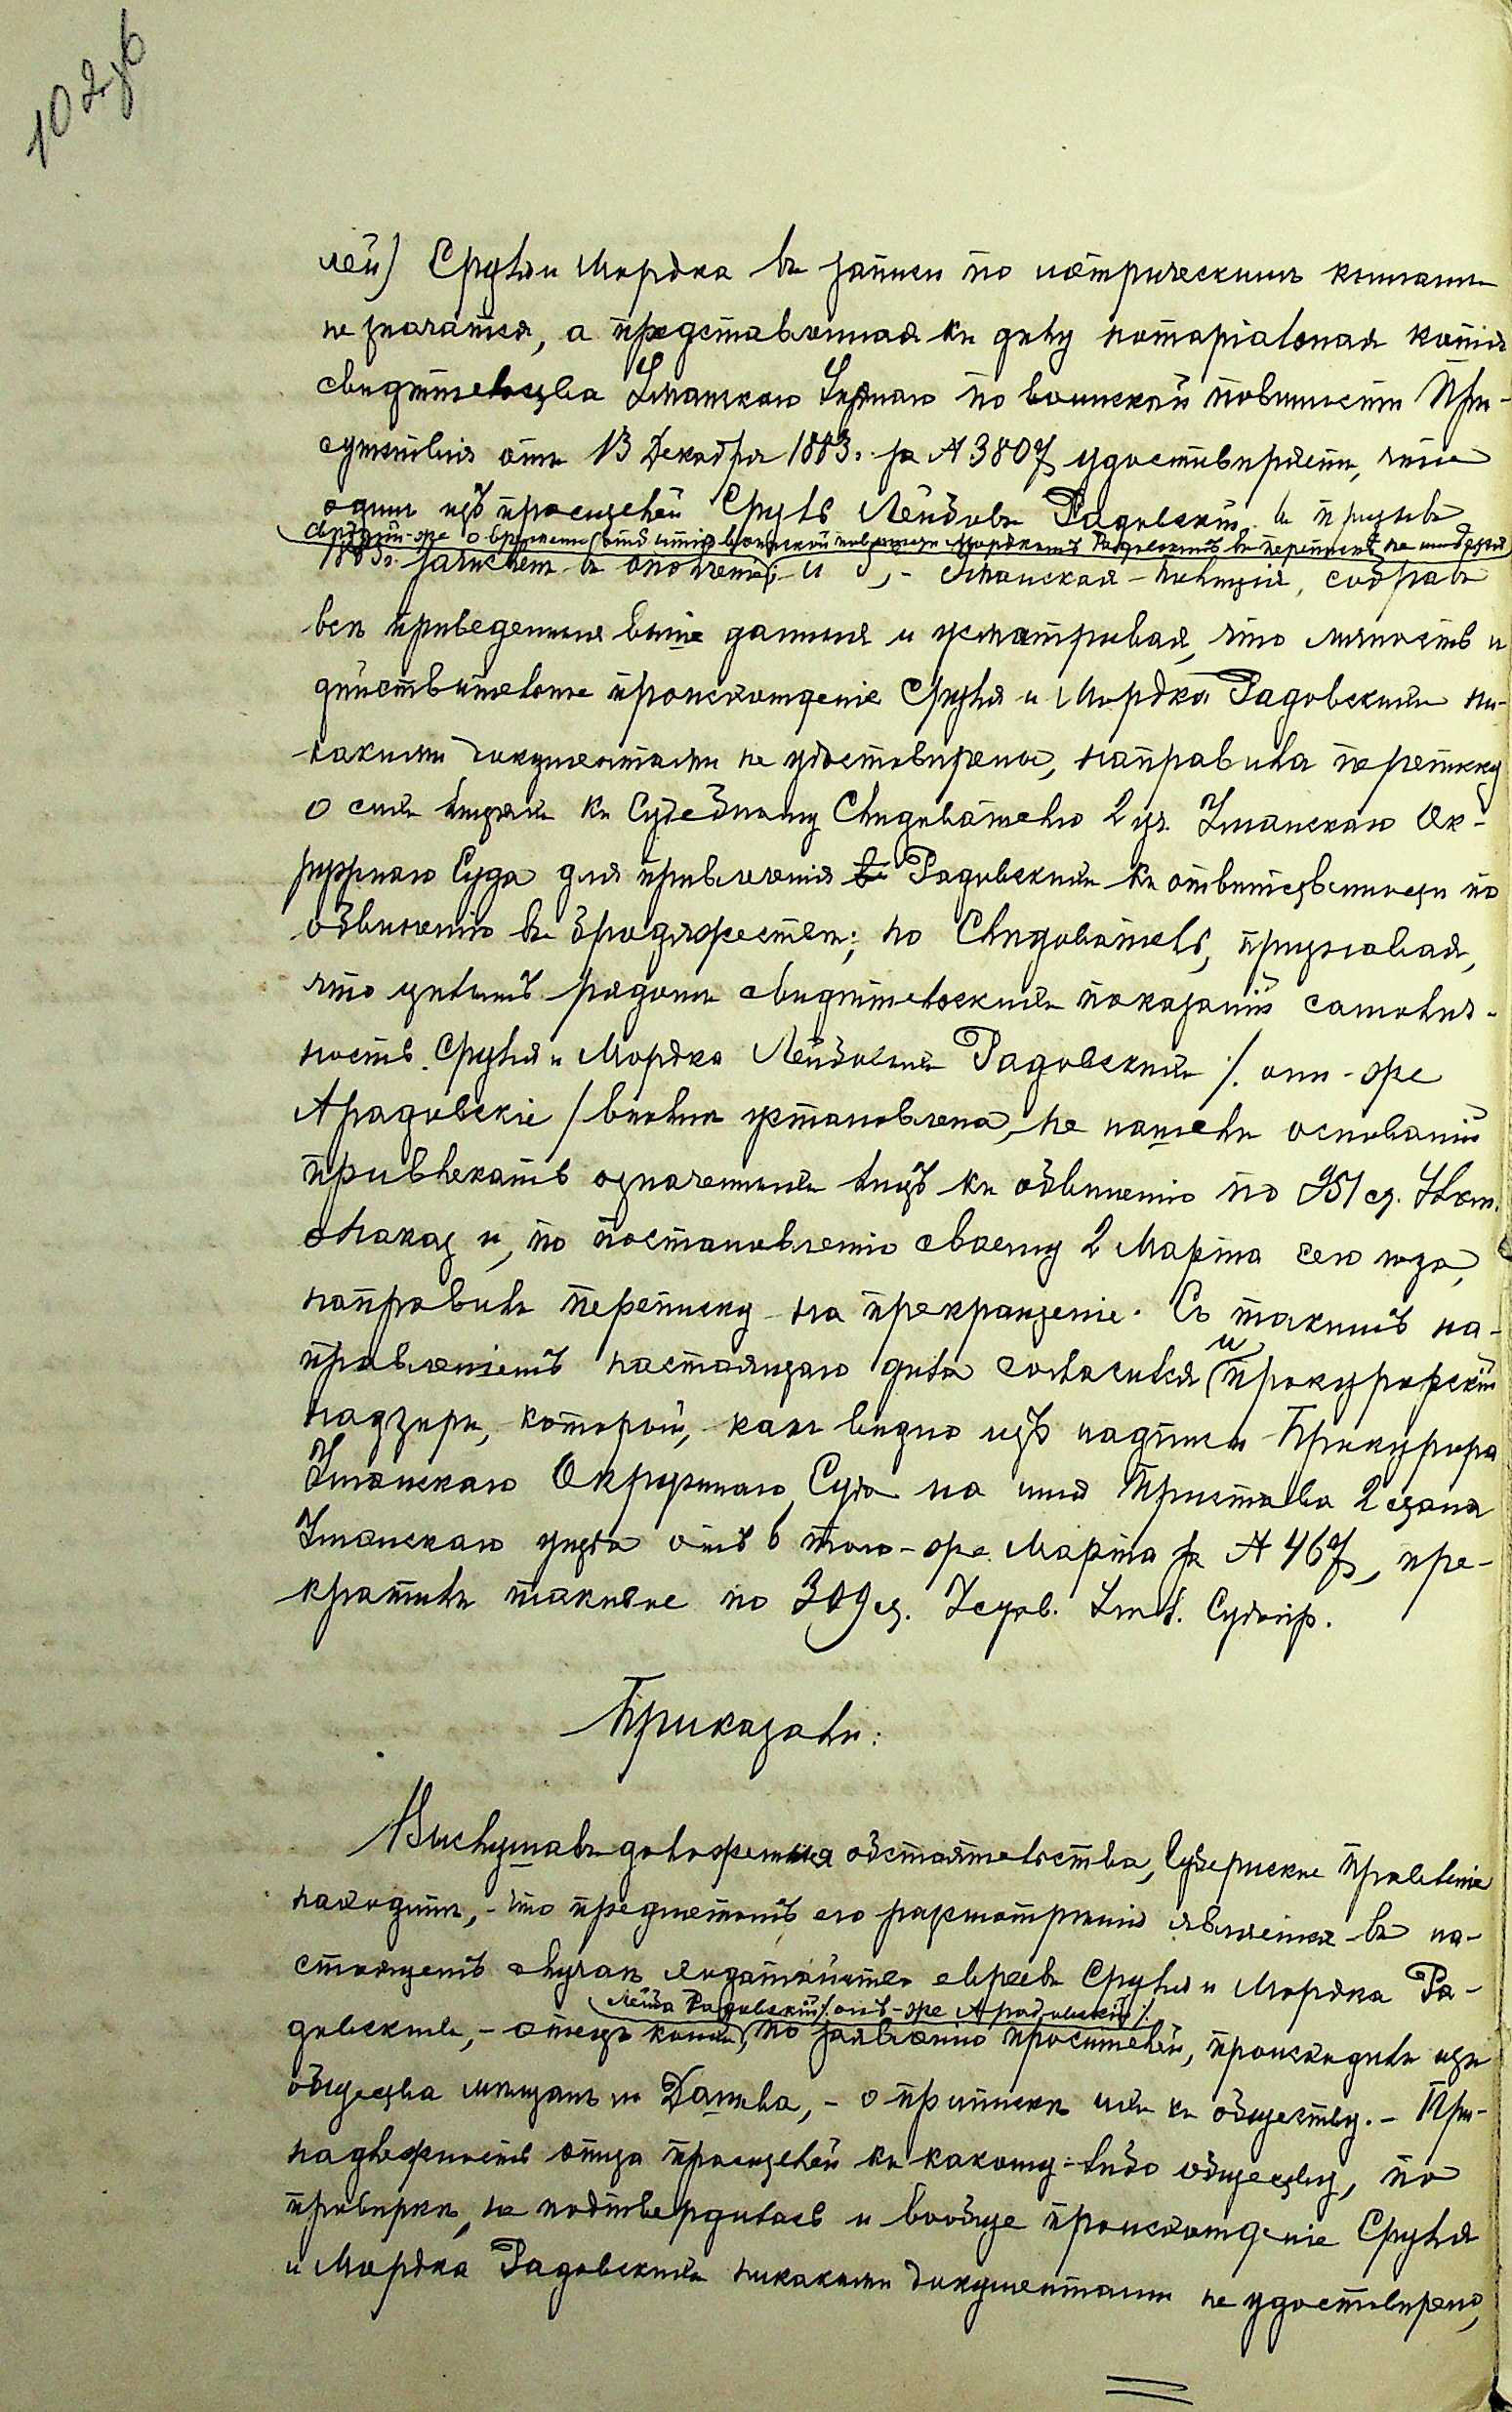 102об
лей) Сруля и Мордка въ записи по метрическимъ книгамъ
не значатся, а представленная къ дѣлу нотаріальная копія
свидѣтельства Уманскаго Уѣзднаго по воинской повинности При-
сутствія отъ 13 Декабря 1883г. за № 3807 удостовѣряетъ, что
одинъ изъ просителей Сруль Лейбовъ Радовскій, въ призывъ
свѣдѣній-же о времени отбытія воинской повинности Мордкомъ Радовскимъ въ перепискѣ не имѣется
1883г. зачисленъ въ ополченіе; и ,- Уманская полиція, собравъ
всѣ приведенныя выше данныя и усматривая, что личность и
дѣйствительное происхожденіе Сруля и Мордка Радовскихъ ни-
какими документами не удостовѣрены, направила переписку
о сихъ лицахъ къ Судебному Слѣдователю 2 уч. Уманскаго Ок-
ружнаго Суда для привлеченія Радовскихъ къ отвѣтственности по
обвиненію въ бродяжествѣ; но Слѣдователь, признавая,
что цѣлымъ рядомъ свидѣтельскихъ показаній самолич-
ность Сруля и Мордка Лейбовыхъ Радовскихъ /. они-же
Арадовскіе / вполнѣ установлена, не нашелъ основаній
привлекать означенныхъ лицъ къ обвиненію по 951 ст. Улож.
о наказ. и, по постановленію своему 2 Марта сего года,
направилъ переписку на прекращеніе. Съ такимъ на-
правленіемъ настоящаго дѣла согласился и прокурорскій
надзоръ, который, какъ видно изъ надписи Прокурора
Уманскаго Окружнаго Суда на имя Пристава 2 стана
Уманскаго уѣзда отъ 6 того-же Марта за № 467, пре-
кратилъ таковое по 309 ст. Устав. Угол. Судопр.
Приказали:
Выслушавъ доложенныя обстоятельства, Губернское Правленіе
находитъ,- что предметомъ его разсмотрѣнія является въ на-
стоящемъ случаѣ ходатайство евреевъ Сруля и Мордка Ра-
Лейба Радовскій /. онъ-же Арадовскій /.
довскихъ,- отецъ коихъ, по заявленію просителей, происходилъ изъ
общества мѣщанъ м. Дашева,- о припискѣ ихъ къ обществу.- При-
надлежность отца просителей къ какому-либо обществу, по
провѣркѣ, не подтвердилась и вообще происхожденіе Сруля
и Мордка Радовскихъ никакими документами не удостовѣрено,